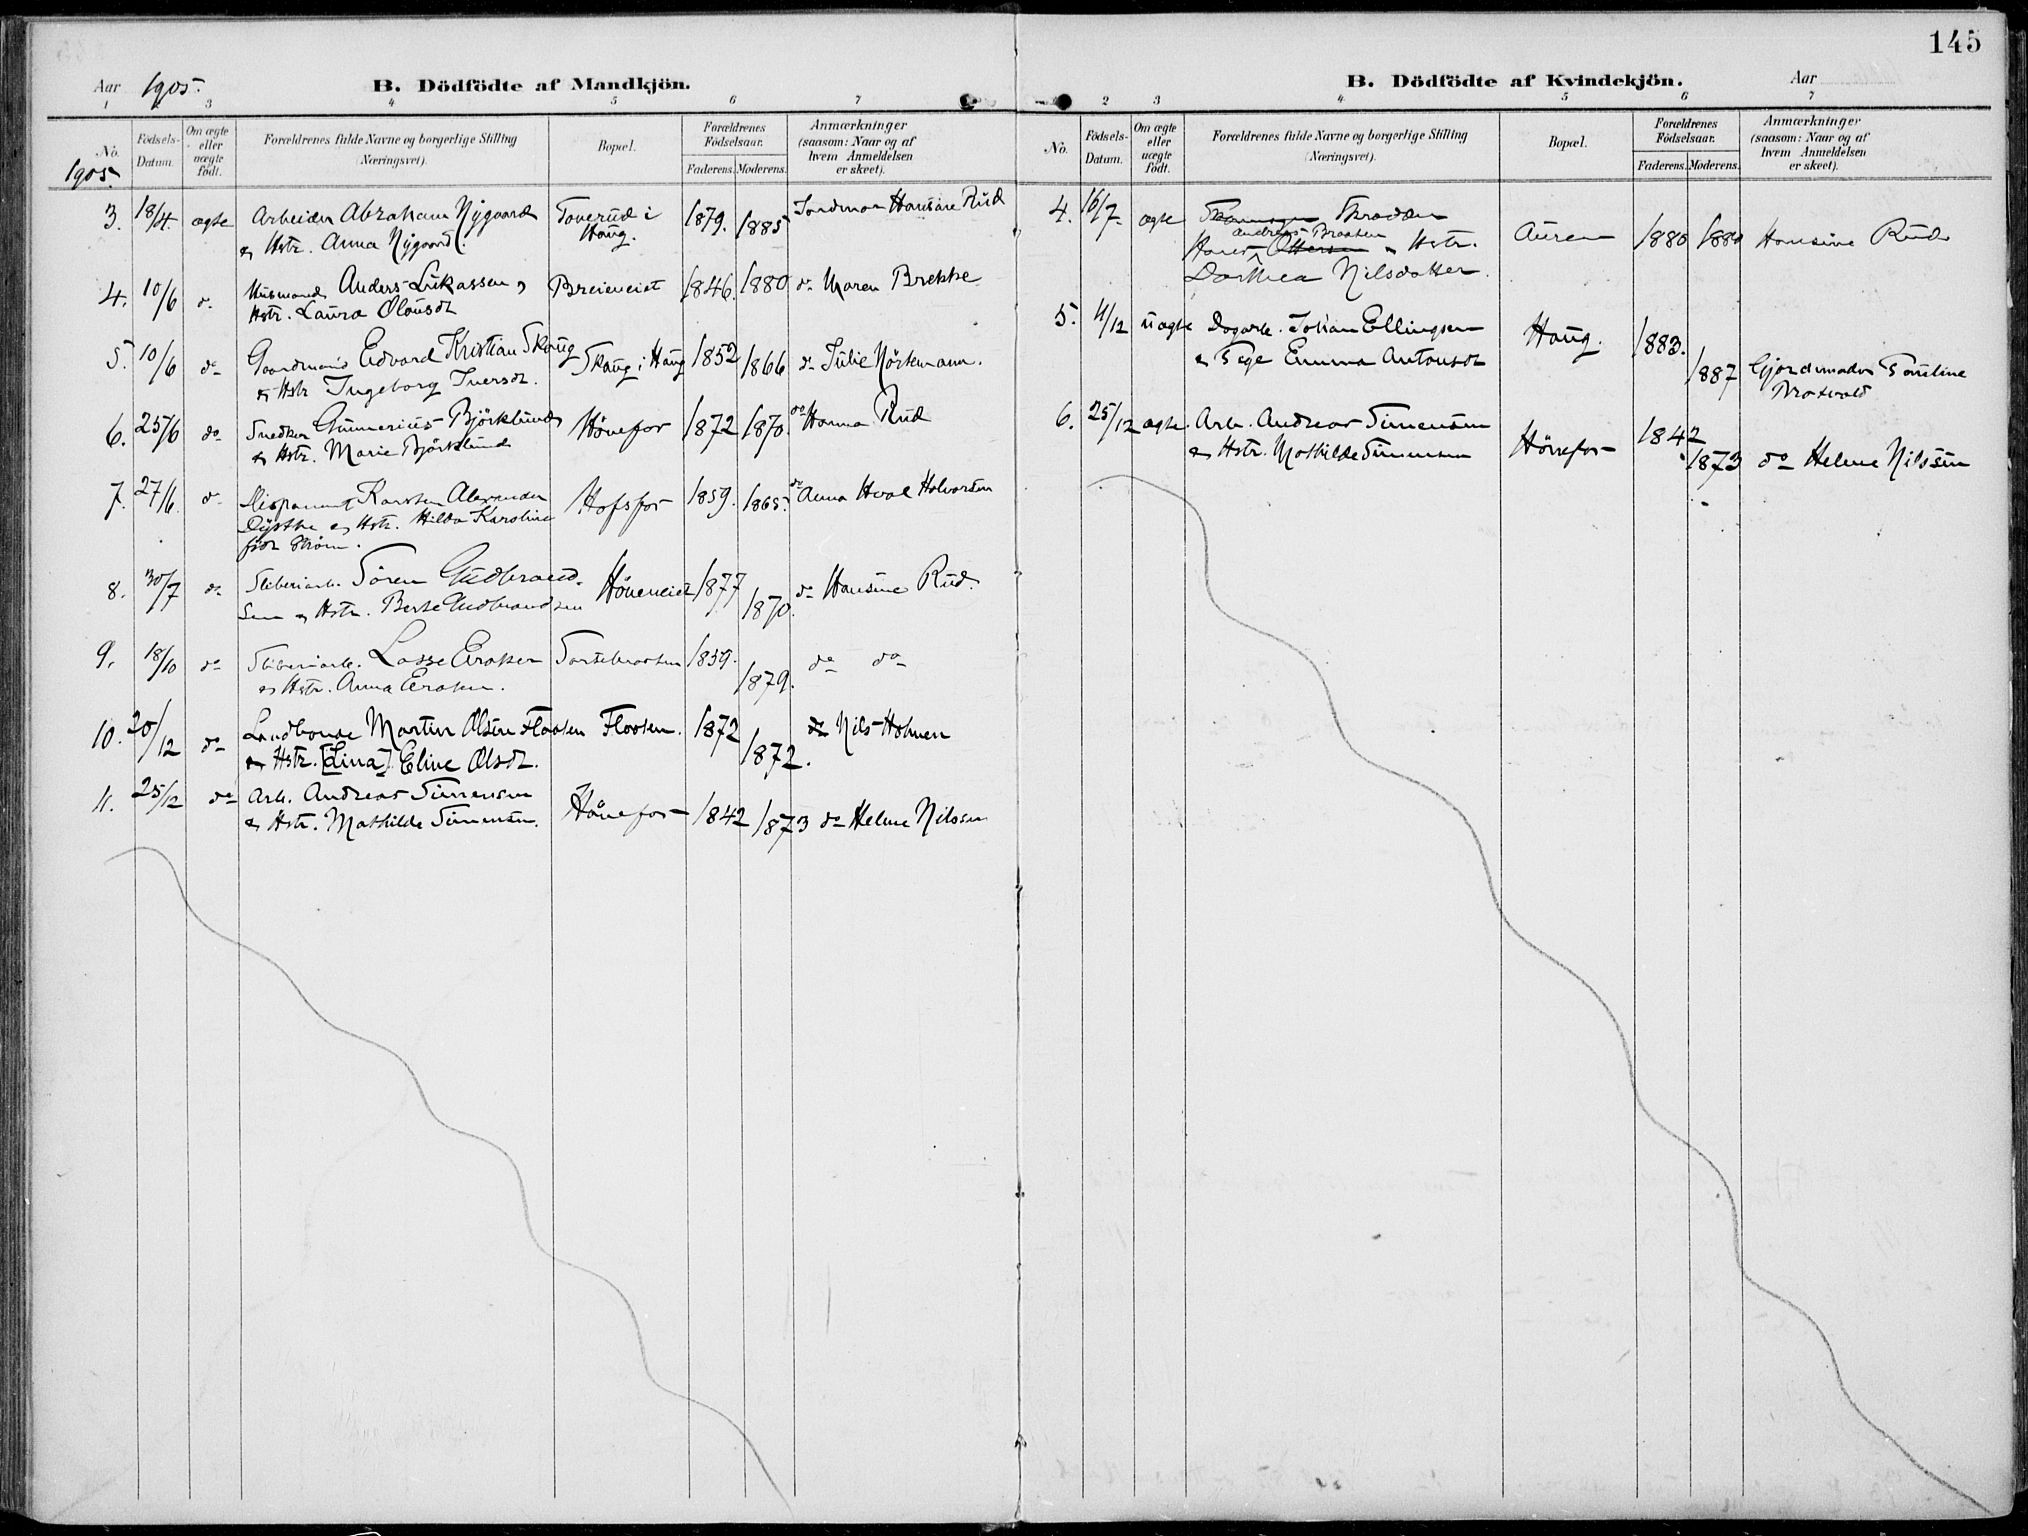 145
Aar 1905. B. Dödfödte af Mandkjön.
1 3 4 5 6 7
No. Födsels-Datum. Om ægte eller uægte født. Forældrenes fulde Navne og borgerlige Stilling (Næringsvei). Bopæl. Forældrenes Födselsaar. Faderens. Moderens. Anmærkninger (saasom: Naar og af hvem Anmeldelsen er skeet).
1905.
3. 18/4. ægte Arbeider Abraham Nygaard Toverud i 1879. 1885 Jordmor Hansine Rud
og Hstr. Anna Nygaard. Haug.
4. 10/6 do Husmand Anders Lukassen og Breieneiet 1846. 1880 do Maren Brekke
Hstr. Laura Olausdt
5. 10/6 do Gaardmand Edvard Kristian Skaug Skaug i Haug 1852 1866 do Julie Nörtemann.
og Hstr Ingeborg Iversdt.
6. 25/6 do Snedker Gunnerius Björklund Hönefos 1872 1870. do Hanna Rud
og Hstr. Marie Björklund
7. 27/6. do Karsten Alexander Hofsfos 1859. 1865. do Anna Hval Halvorsen
og Hstr. Hilda Karoline
født Strøm.
8. 30/7 do Sliberiarb. Sören Gudbrand- Höneneiet 1877 1870. do Hansine Rud.
sen og Hstr. Berte Gudbrandsen
9. 18/10 do Sliberiarb. Lasse Eraker Tortebraaten 1859. 1879. do do
og Hstr. Anna Eraker.
10. 20/12 do Landbonde Martin Olsen Flaaten Flaaten. 1872 1872. do Nils Holmen
og Hstr. [Lina] Eline Olsdt.
11. 25/12 do Arb. Andreas Simensen Hönefos 1842 1873 do Helene Nilssen
og Hstr. Mathilde Simensen.
B. Dödfödte af Kvindekjön. Aar
2 3 4 5 6 7
No. Födsels-Datum. Om ægte eller uægte født. Forældrenes fulde Navne og borgerlige Stilling (Næringsvei). Bopæl. Forældrenes Födselsaar. Faderens. Moderens. Anmærkninger (saasom: Naar og af hvem Anmeldelsen er skeet).
4. 16/7 ægte Skrædder Auren 1880 1880 Hansine Rud
Andreas Braaten
Hans Ottersen og Hstr.
Dorthea Nilsdatter.
5. 4/12 uægte Dagarb. Johan Ellingsen Haug. 1883. 1887 Gjordemoder
og Pige Emma Antonsdt
6. 25/12 ægte. Arb. Andreas Simensen Hönefos 1842 1873 do Helene Nilssen
og Hstr. Mathilde Simensen